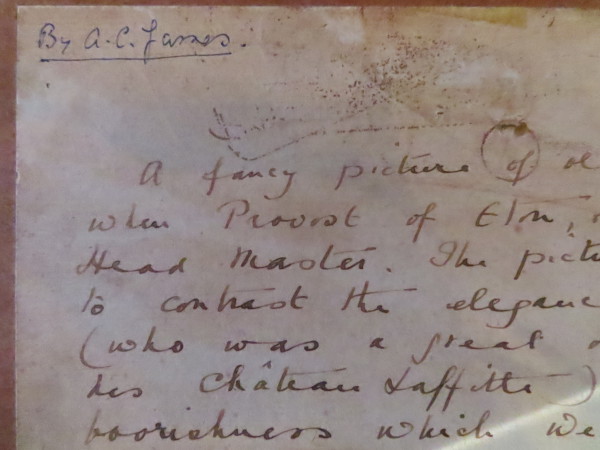 By A.C. James.
A fancy picture of
when Provost of Eton,
Head Master. The pictu
to contrast the eleganc
(who was a great
his Château Laffitte)
boorishness which we